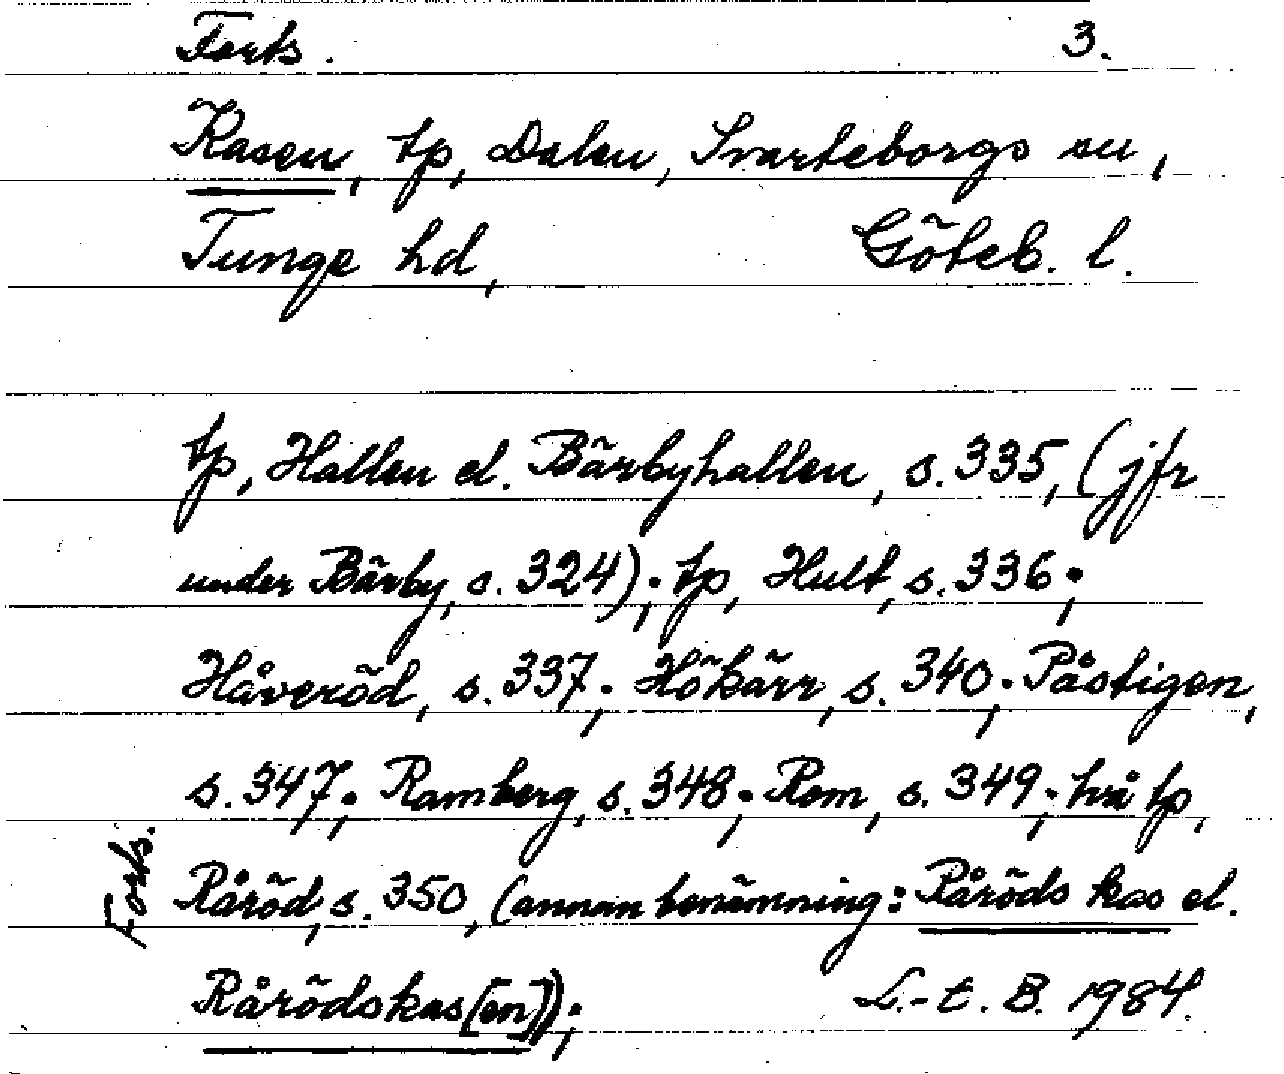 Forts. 3.
Kasen, tp, Dalen, Svarteborgs sn,
Tunge hd, Göteb. l.
tp, Hallen el. Bärbyhallen, s. 335, (jfr
under Bärby, s. 324); tp, Hult, s. 336;
Håveröd, s. 337; Hökärr, s. 340; Påstigen,
s. 347; Ramberg, s. 348; Rom, s. 349; två tp,
Råröd, s. 350, (annan benämning: Råröds kas el.
Rårödskas[en]); L.-t. B. 1984.
Forts.